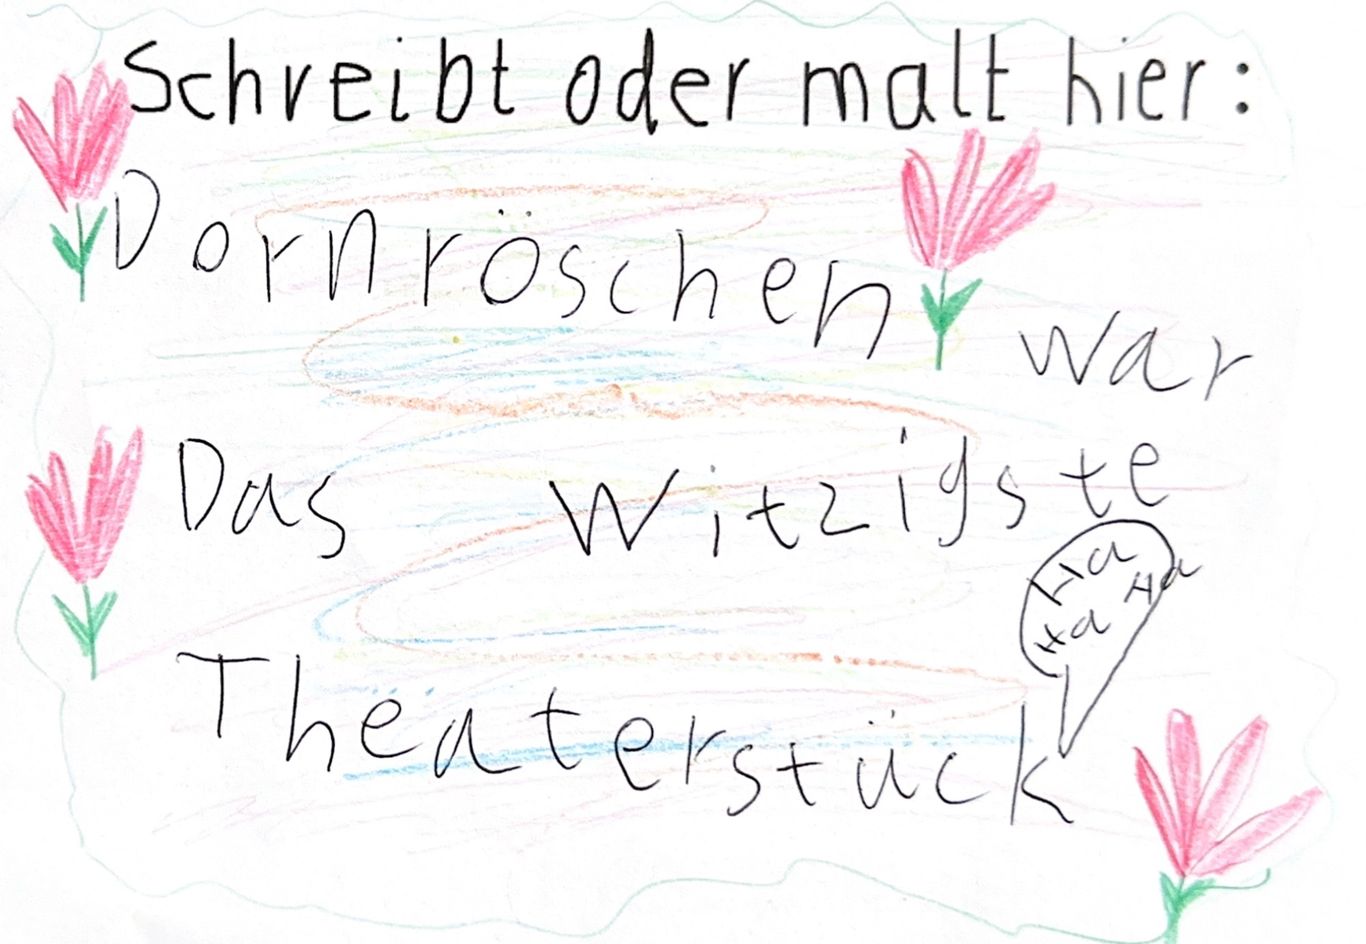 Schreibt oder malt hier:
Dornröschen war
Das Witzigste
Ha
Ha
Ha
Theaterstück